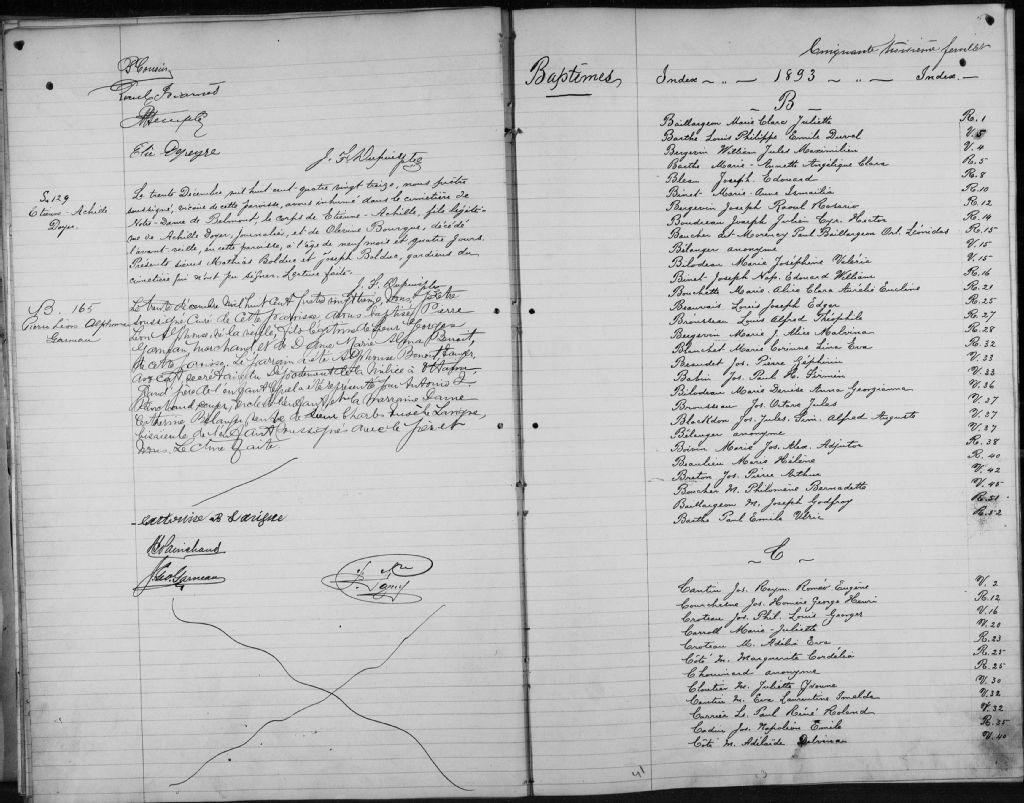 P Cousin
Elie Dqeyre
J. F. Dupuis, ptre
S. 129
Etienne-Achille
Doyer.
Le trente Décembre mil huit cent quatre vingt treize, nous prêtre
soussigné, vicaire de cette paroisse, avons inhumé dans le cimetière de
Notre-Dame de Belmont, le corps de Etienne-Achille, fils légiti-
me de Achille Doyer, journalier, et de Obeline Bourque, décédé
l'avant-veille, en cette paroisse, à l'âge de neuf mois et quatre jours.
Présents sieurs Mathias Bolduc et Joseph Bolduc, gardiens du
cimetière qui n'ont pu signer. Lecture faite.
J. F. Dupuis, ptre
B. 165
Pierre Léon Alphonse
Garneau
Le trente décembre mil huit cent quatre vingt treize, nous, prêtre
soussigné curé de cette paroisse avons baptisé Pierre
Léon Alphonse né la veille, fils légitime de Sieur Georges
Garneau, marchand et de Dame Marie Alma Benoit,
de cette paroisse. Le parrain a été Alphonse Benoit, Esqr,
avocat secrétaire du département de la Milice à Ottawa
Grand père de l'enfant
et la marraine Dame
Catherine Bélanger, épouse de Sieur Charles Eusèbe Lavigne,
bisaïeule de l'enfant soussignés avec le père et
nous. Lecture faite
Catherine B Lavigne
A Painchaud
J. Geo. Garneau
Cinquante troisième feuillet
Baptêmes
Index ~ " ~ 1893 ~ " ~ Index. ~
B
Baillargeon Marie Clara Juliette R. 1
Barthe Louis Philippe Emile Durval V. 5
Bergevin William Jules Maximilien V. 4
Barthe Marie-Annette Angélique Clara R. 5
Bleau Joseph Edouard R. 8
Binet Marie-Anne Ismailia R. 10
Bergevin Joseph Raoul Rosario R. 12
Bourdeau Joseph Julien Cyr. Hector R. 14
Boucher dit Morency Paul Baillargeon Art. Léonidas R. 15
Bélanger anonyme V. 15
Bilodeau Marie Joséphine Valérie V. 15
Binet Joseph Nap. Edouard William R. 16
Bouchette Marie Alice Clara Aurélie Emeline R. 21
Beauvais Louis Joseph Edgar R. 25
Brousseau Louis Alfred Théophile R. 27
Bergevin Marie J. Alice Malvina R. 28
Blanchet Marie Corinne Lina Eva R. 32
Beaudet Jos. Pierre Zéphirin V. 33
Babin Jos. Paul H. Firmin V. 33
Bilodeau Marie Denise Anna Georgianna V. 36
Brousseau Jos. Octave Jules V. 37
Blackdon Jos. Jules. Sim. Alfred Auguste V. 37
Bélanger anonyme V. 37
Boivin Marie Jos. Alex. Adjutor R. 38
Beaulieu Marie Hélène R. 40
Breton Jos. Pierre Arthur V. 42
Boucher M. Philomène Bernadette V. 45
Baillargeon M. Joseph Godfroy R. 51
Barthe Paul Emile Ulric R. 52
C
Cantin Jos. Raym. Roméo Eugène V. 2
Courchesne Jos. Homère George Henri R. 12
Croteau Jos. Phil. Louis Georges V. 16
Carroll Marie-Juliette V. 20
Croteau M. Adélia Eva R. 23
Côté M. Marguerite Cordélia R. 25
Chouinard anonyme R. 25
Cloutier M. Juliette Yvonne V. 30
Cantin M. Eva Laurentine Imelda V. 32
Carrier Ls. Paul Réné Roland V. 32
Cadur Jos. Napoléon Emile R. 35
Côté M. Adélaïde Delvina V. 40